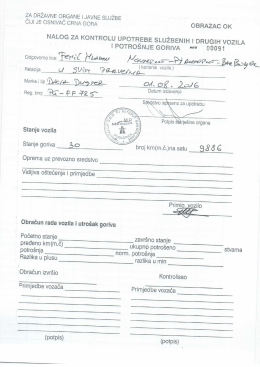 ZA DRŽAVNE ORGANE I JAVNE SLUŽBE
ČIJI JE OSNIVAČ CRNA GORA
OBRAZAC OK
NALOG ZA KONTROLU UPOTREBE SLUŽBENIH I DRUGIH VOZILA
I POTROŠNJE GORIVA 00091
Odgovorno lice
Relacija U SVIM PRAVCIMA
Marka i tip DACIA DUSTER 01.08.2016
Datum
Reg. broj
Saglasno opremu za upotrebu
Potpis ovlašćenog organa
Stanje vozila
Stanje goriva 30 broj km(m.č.)na satu 9886
Oprema uz prevozno sredstvo
Vidljiva oštećenja i primjedbe
Primio vozilo
Obračun rada vozila i utrošak goriva
Početno stanje završno stanje
pređeno km(m.č) ukupno potrošeno stvarna
potrošnja norm. potrošnja
Razlike u plusu razlika u min
Obračun izvršio Kontrolisao
Primjedbe vozača Primjedbe vozača
(potpis) (potpis)